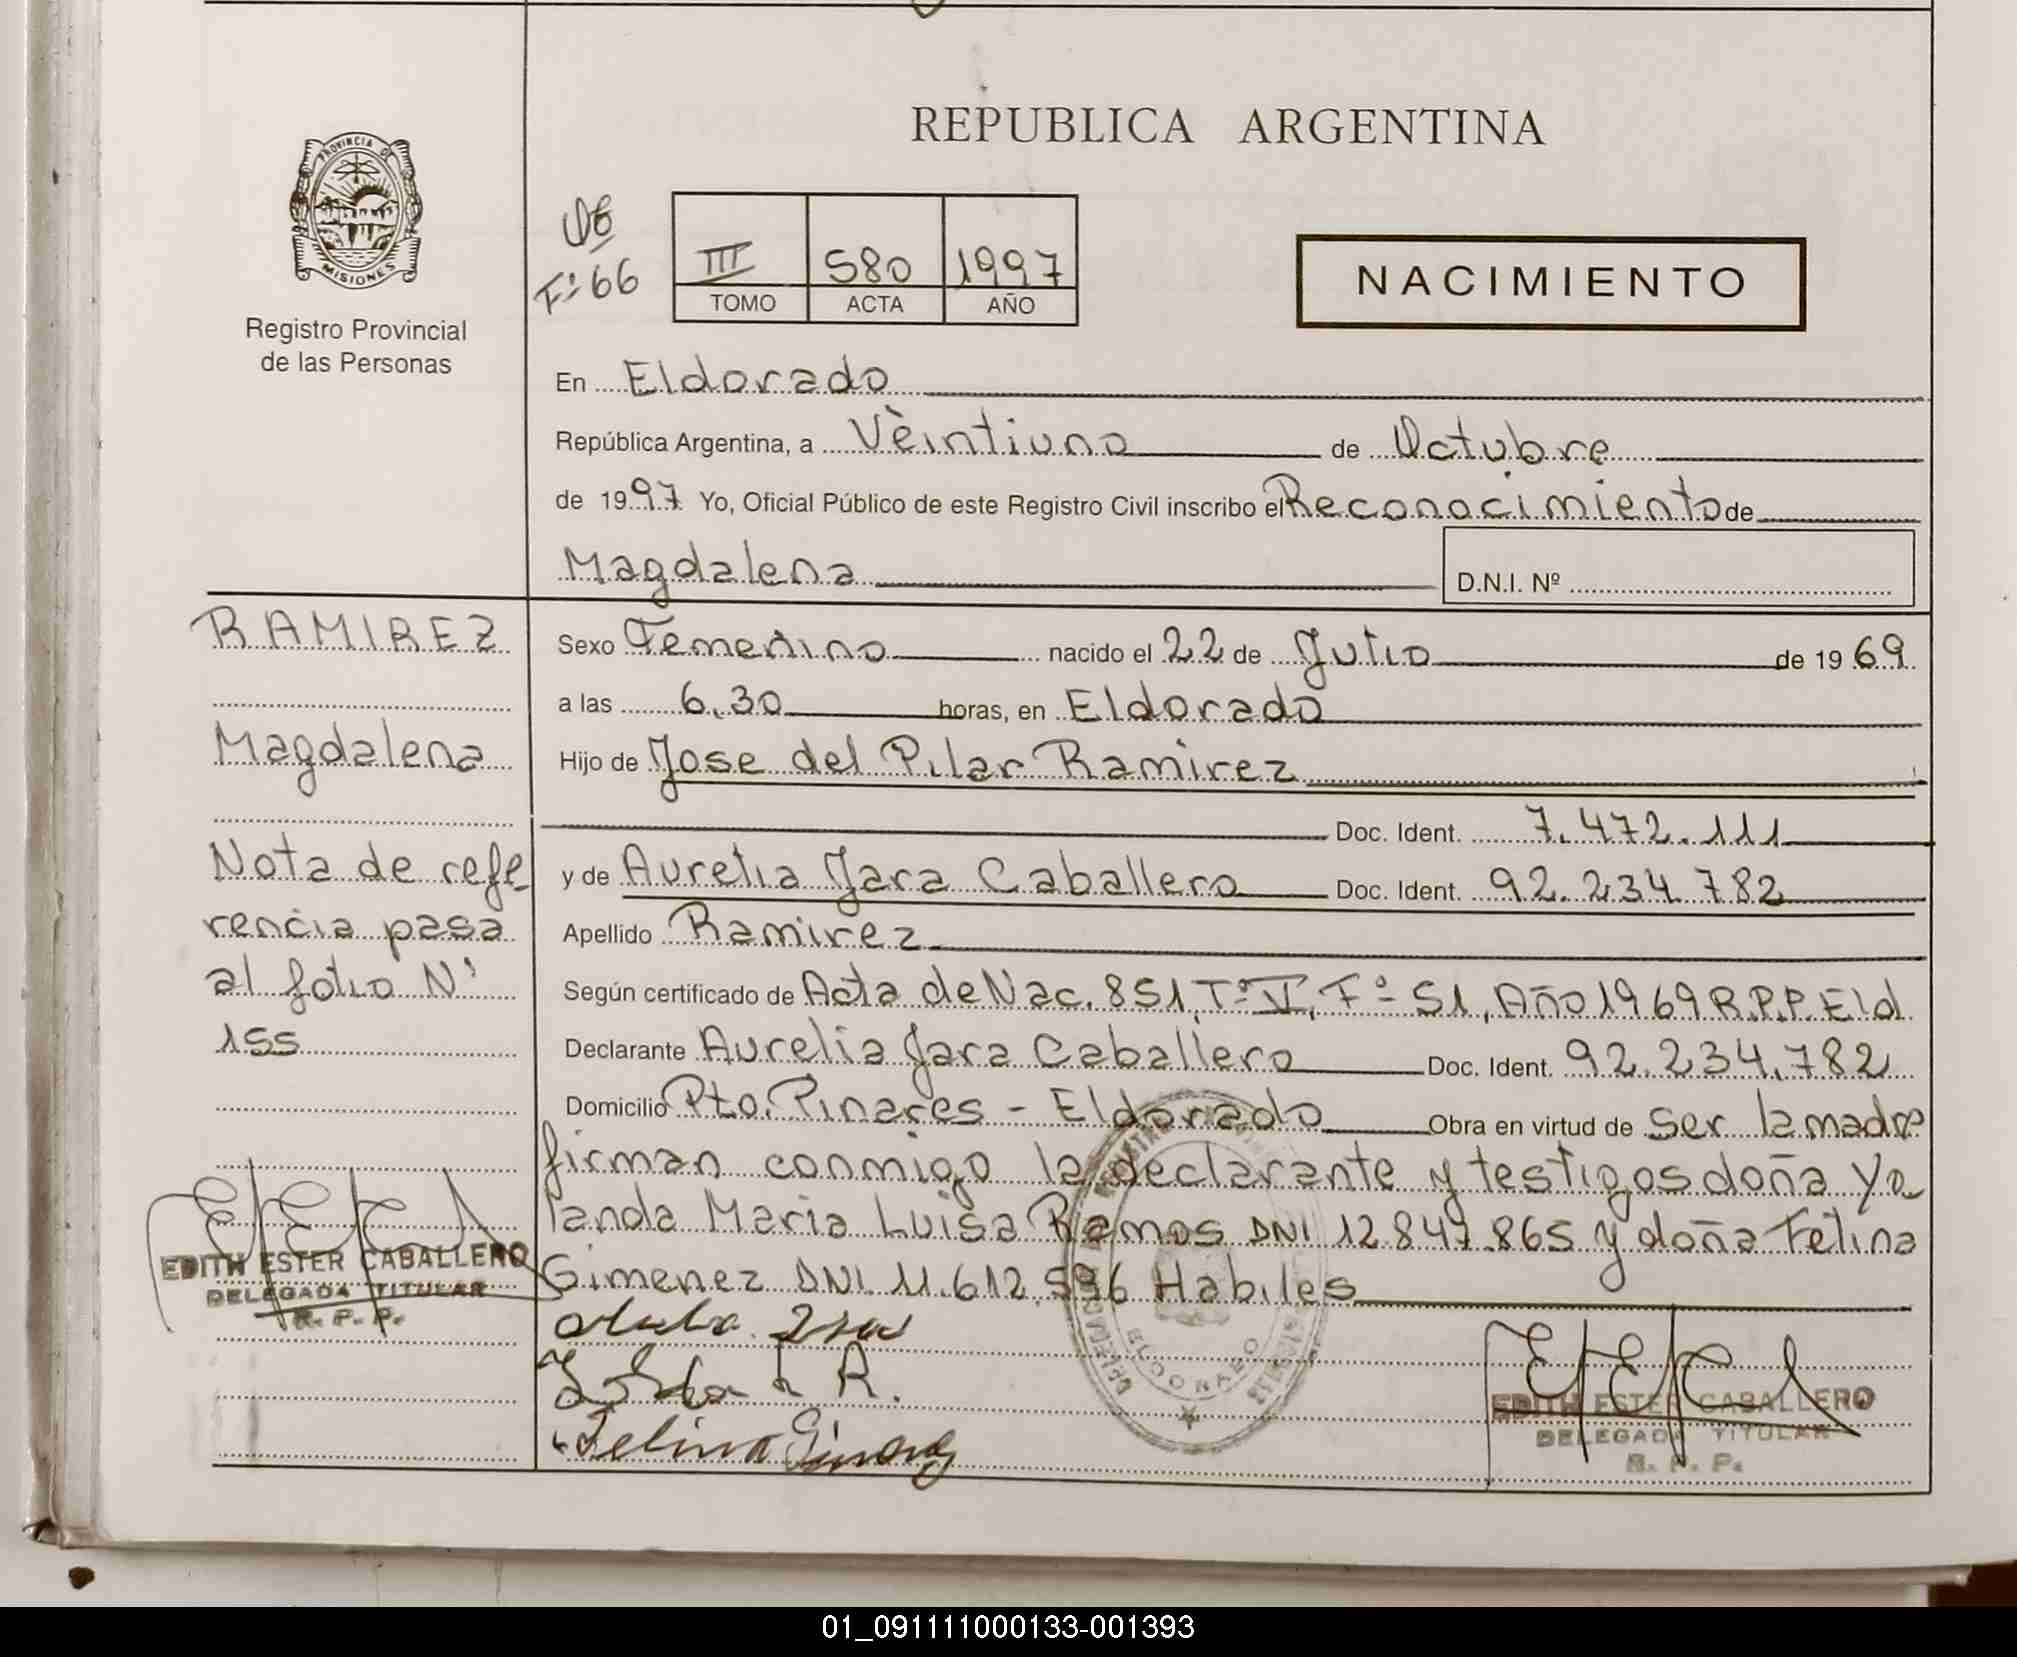 REPUBLICA ARGENTINA
PROVINCIA DE
MISIONES
Registro Provincial
de las Personas
F° 66
III 580 1997
TOMO ACTA AÑO
NACIMIENTO
En Eldorado
República Argentina, a Veintiuno de Octubre
de 1997 Yo, Oficial Público de este Registro Civil inscribo el Reconocimiento de
Magdalena D.N.I. Nº
RAMIREZ
Magdalena
Nota de refe
rencia pasa
al folio N°
155
EDITH ESTER CABALLERO
DELEGADA TITULAR
R. P. P.
Sexo Femenino nacido el 22 de Julio de 1969
a las 6.30 horas, en Eldorado
Hijo de Jose del Pilar Ramirez
Doc. Ident. 7.472.111
y de Aurelia Jara Caballero Doc. Ident. 92.234.782
Apellido Ramirez
Según certificado de Acta de Nac. 851, T° V, F° 51, Año 1969 R.P.P. Eld.
Declarante Aurelia Jara Caballero Doc. Ident. 92.234.782
Domicilio Pto. Pinares - Eldorado Obra en virtud de ser la madre
firman conmigo la declarante y testigos doña Yo
landa Maria Luisa Ramos DNI 12.847.865 y doña Felina
Gimenez DNI. 11.612.596 Habiles
R.
Felina Gimenez
ELDORADO
EDITH ESTER CABALLERO
DELEGADA TITULAR
R. P. P.
01_091111000133-001393